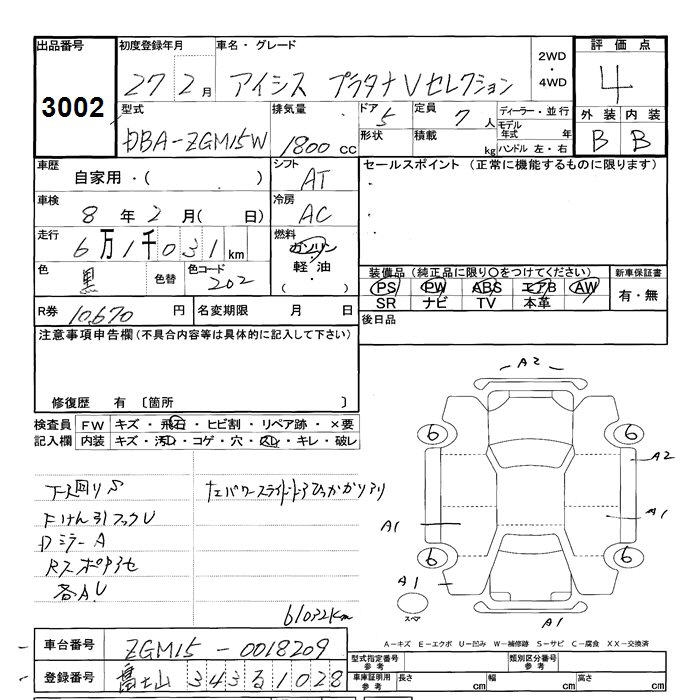 出品番号
3002
初度登録年月
27 2月
車名・グレード
アイシス プラタナVセレクション
2WD
・
4WD
評価点
4
型式
DBA-ZGM15W
排気量
1800 cc
ドア
5
形状
定員
7 人
積載
kg
ディーラー・並行
モデル年式 年
ハンドル 左・右
外装 内装
B B
車歴
自家用・( )
シフト
AT
車検
8年2月( 日)
冷房
AC
走行
6万1千031km
燃料
ガソリン
軽油・
( )
色
黒
色替
色コード
202
R券 10,670 円
名変期限 月 日
セールスポイント (正常に機能するものに限ります)
・
・
・
装備品(純正品に限り○をつけてください)
PS PW ABS エアB AW
SR ナビ TV 本革
新車保証書
有・無
後日品
注意事項申告欄(不具合内容等は具体的に記入して下さい)
修復歴 有 〔箇所 〕
検査員記入欄
FW キズ・飛石・ヒビ割・リペア跡・×要
内装 キズ・汚レ・コゲ・穴・スレ・キレ・破レ
下廻りS
Fけん引フックU
Dミラー A
各AU
61032km
A2
6 6
A2
A1 A1
6 6
A1
スペア
A1
A-キズ E-エクボ U-凹み W-補修跡 S-サビ C-腐食 XX-交換済
車台番号 ZGM15-0018209
登録番号 富士山 343 る 1028
型式指定番号
参考
類別区分番号
参考
車庫証明用
参考
長さ cm 幅 cm 高さ cm